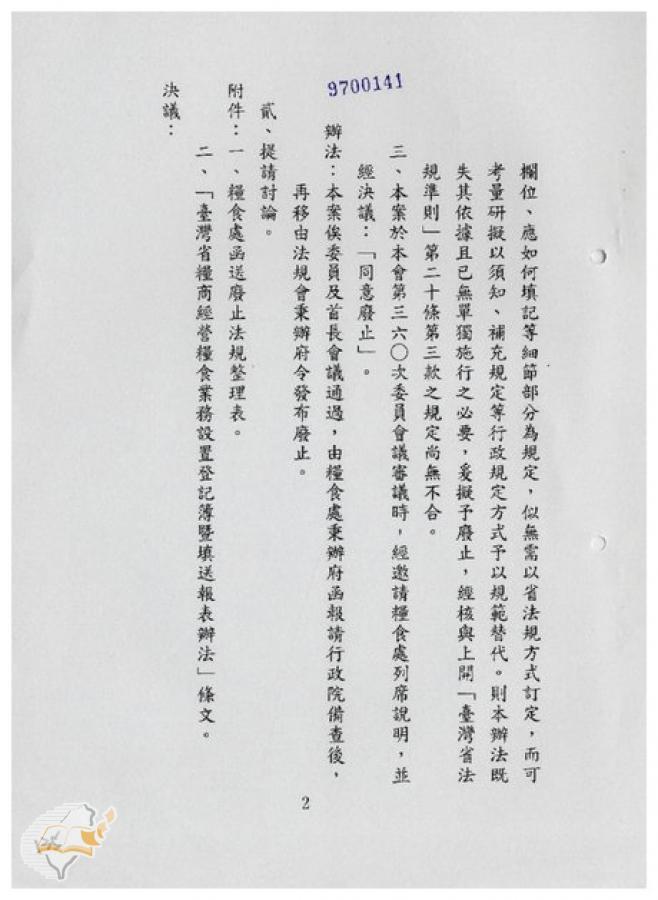 9700141
欄位、應如何填記等細節部分為規定，似無需以省法規方式訂定，而可
考量研擬以須知、補充規定等行政規定方式予以規範替代。則本辦法既
失其依據且已無單獨施行之必要，爰擬予廢止，經核與上開「臺灣省法
規準則」第二十條第三款之規定尚無不合。
三、本案於本會第三六〇次委員會議審議時，經邀請糧食處列席說明，並
經決議：「同意廢止」。
辦法：本案俟委員及首長會議通過，由糧食處秉辦府函報請行政院備查後，
再移由法規會秉辦府令發布廢止。
貳、提請討論。
附件：一、糧食處函送廢止法規整理表。
二、「臺灣省糧商經營糧食業務設置登記簿暨填送報表辦法」條文。
決議：
2